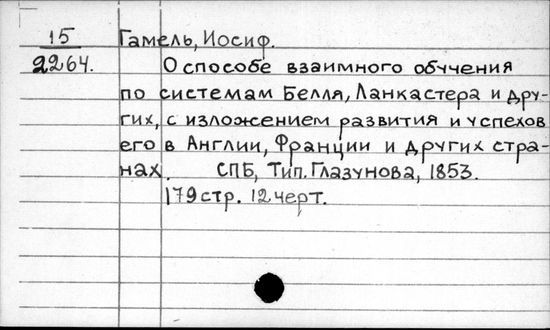 15 Гамель, Иосиф.
2264. О способе взаимного обучения
по системам Белля, Ланкастера и дру-
гих, с изложением развития и успехов
его в Англии, Франции и других стра-
нах. СПБ, Тип. Глазунова, 1853.
179 стр. 12 черт.